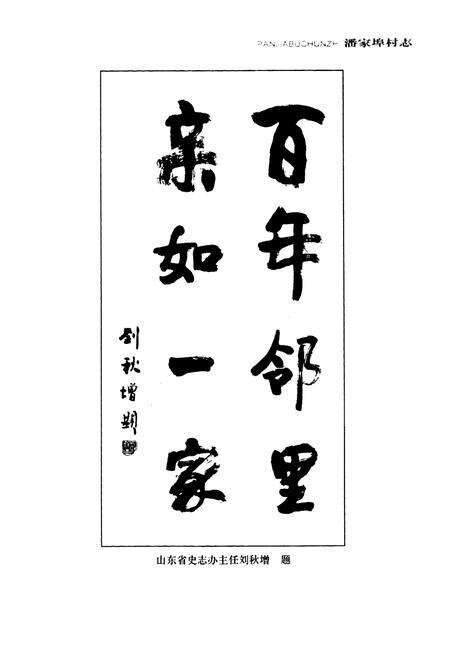 PANJIABUCUNZHI 潘家埠村志
百年邻里
亲如一家
刘秋增题
山东省史志办主任刘秋增 题